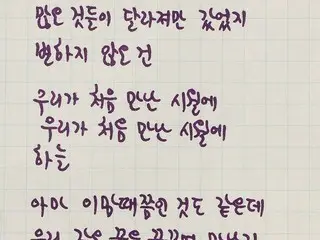 많은 것들이 달라져만 갔었지
변하지 않은 건
우리가 처음 만난 시월에
우리가 처음 만난 시월에
하늘
아마 이맘때쯤인 것도 같은데